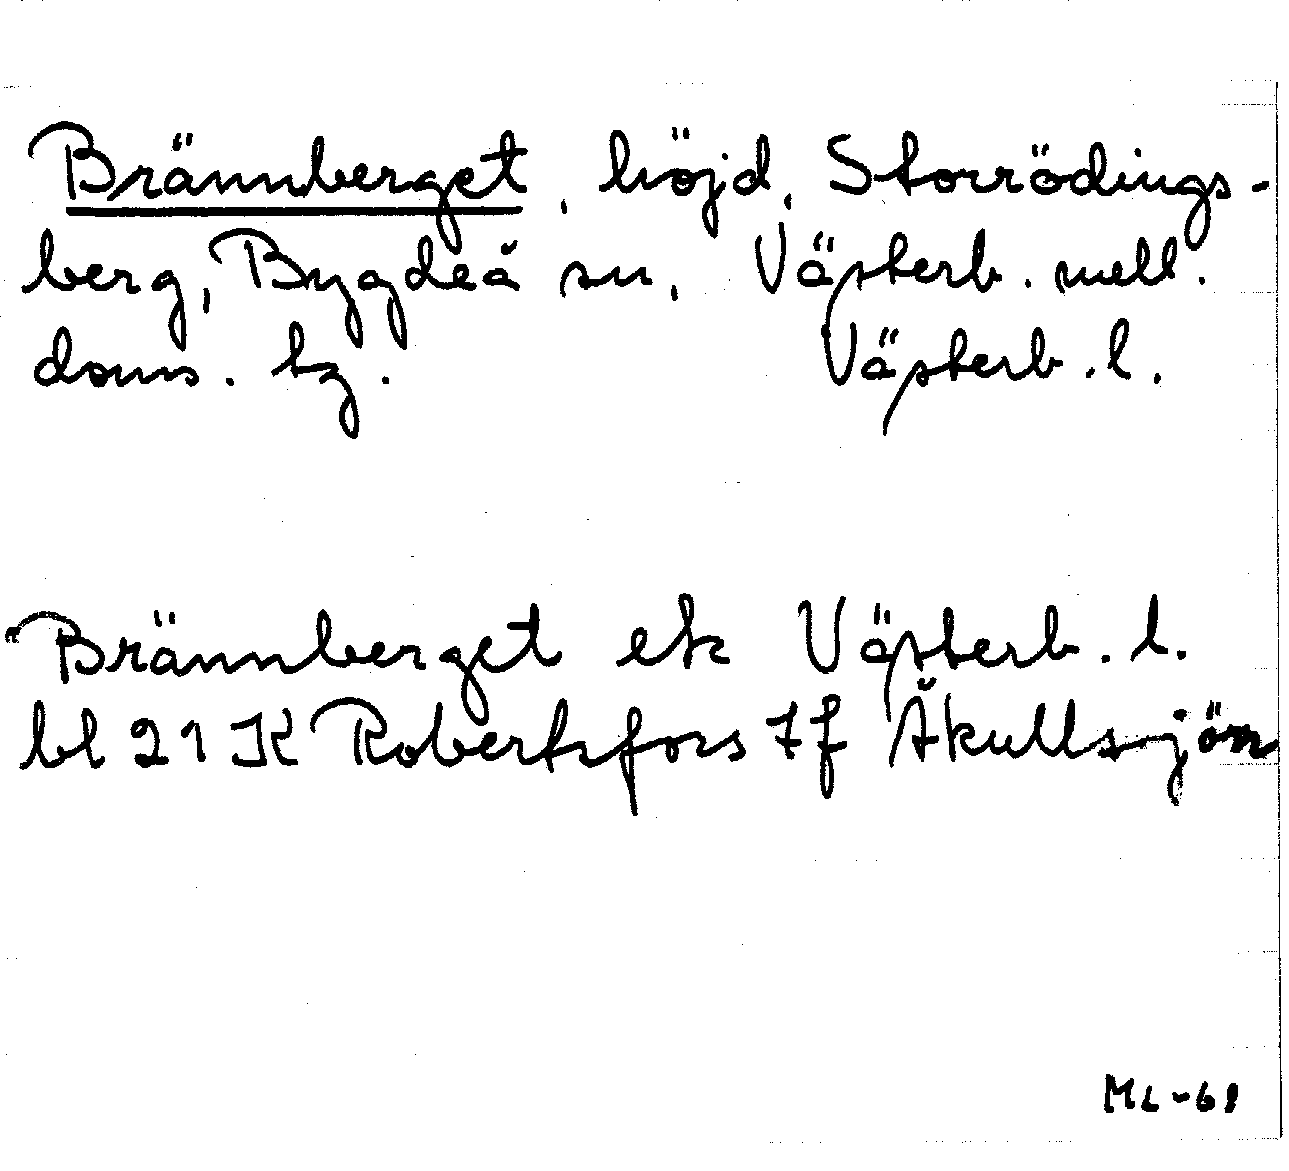 Brännberget, höjd, Storrödings-
berg, Bygdeå sn, Västerb. mell.
doms. tg. Västerb. l.
Brännberget ek Västerb. l.
bl 21 K Robertsfors 7f Åkullsjön
ML-61